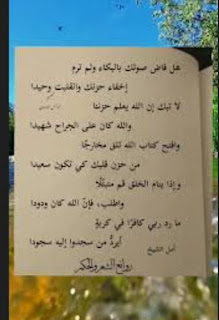 هل فاض صوتك بالبكاء ولم ترم
إخفاء حزنك وانقلبت وحيدا
لا تبك إن الله يعلم حزننا
والله كان على الجراح شهيدا
وافتح كتاب الله تلق مخارجًا
من حزن قلبك كي تكون سعيدا
وإذا ينام الخلق قم متبتلًا
واطلب، فإنّ الله كان ودودا
ما رد ربي كافرًا في كربةٍ
أيردُّ من سجدوا إليه سجودا
أمل الشيخ
روائع الشعر والحكم